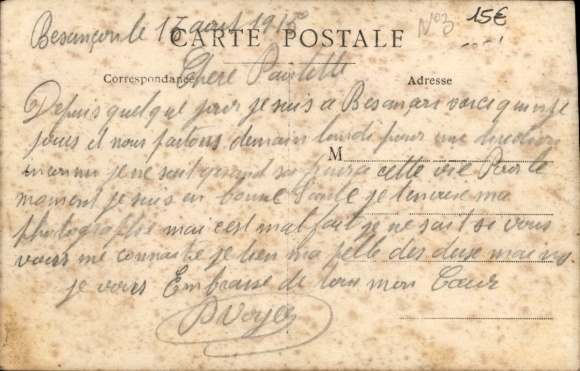 Besançon le 15 aout 1915
N°3
15€
CARTE POSTALE
Correspondance
Adresse
Chere Paulette
Depuis quelque jour je suis a Besançon voici quinze
jours et nous partons demain lundi pour une direction
inconnu je ne sait quand sa finira cette vie Pour le
M
moment je suis en bonne Santé je tenvoie ma
photographie mai cest mal fait je ne sait si vous
vous me connaitré je tien ma pelle des deux mains
je vous Embrasse de tous mon Cœur